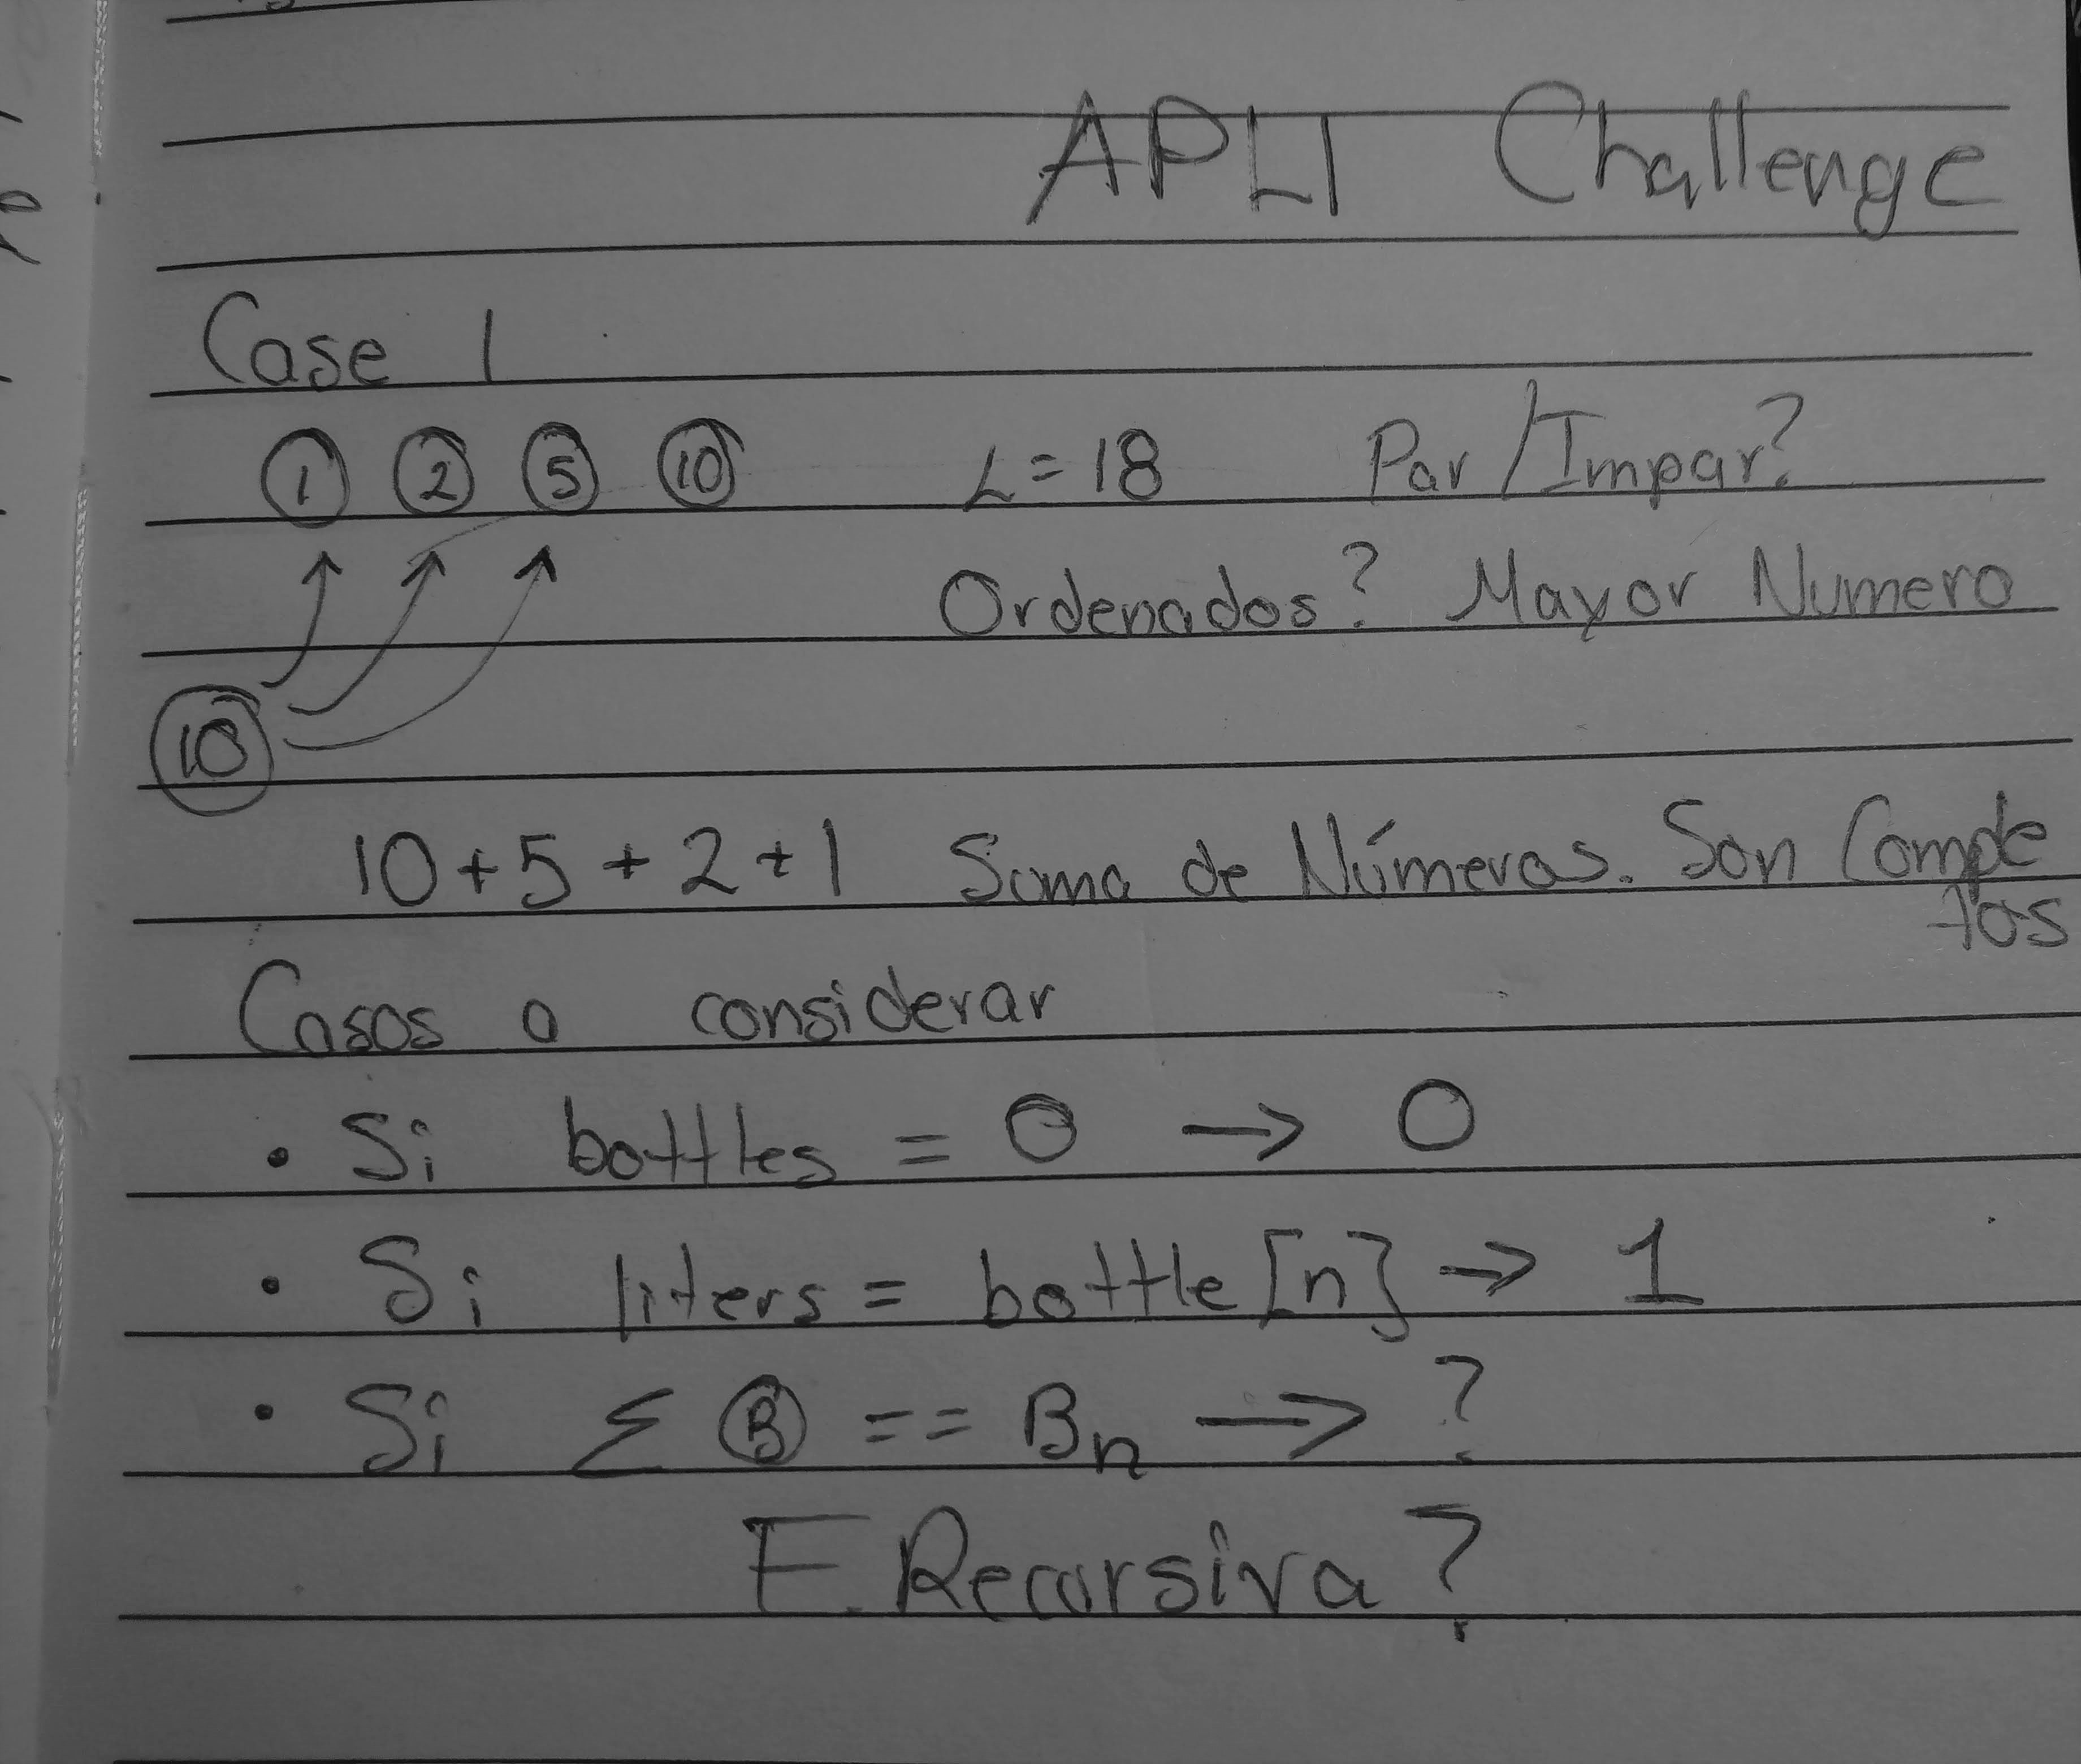 APLI Challenge
Case 1
1 2 5 10 L = 18 Par/Impar?
Ordenados? Mayor Numero
10
10 + 5 + 2 + 1 Suma de Números. Son Comple
tos
Casos a considerar
• Si bottles = 0 → 0
• Si liters = bottle[n] → 1
• Si Σ B == Bn → ?
F. Recursiva?